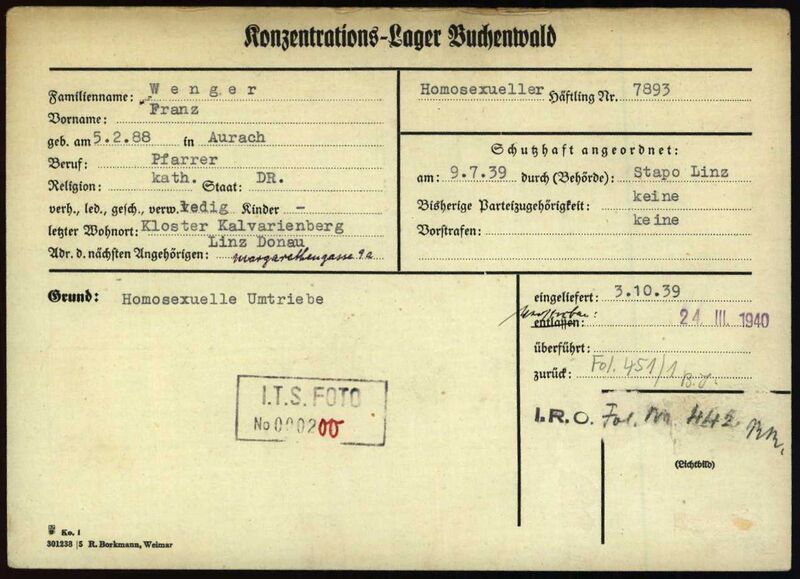 Konzentrations-Lager Buchenwald
Familienname: Wenger
Vorname: Franz
geb. am 5.2.88 in Aurach
Beruf: Pfarrer
Religion: kath. Staat: DR.
verh., led., gesch., verw. ledig Kinder -
letzter Wohnort: Kloster Kalvarienberg
Linz Donau
Adr. d. nächsten Angehörigen: Margarethengasse 9a
Homosexueller Häftling Nr. 7893
Schutzhaft angeordnet:
am: 9.7.39 durch (Behörde): Stapo Linz
Bisherige Parteizugehörigkeit: keine
Vorstrafen: keine
Grund: Homosexuelle Umtriebe
eingeliefert: 3.10.39
entlassen: 24 III. 1940
überführt:
zurück: Fol. 451/1
I.R.O. Fol. Nr. 442
(Lichtbild)
I.T.S. FOTO
No 000200
Ko. 1
301238 /5 R. Borkmann, Weimar